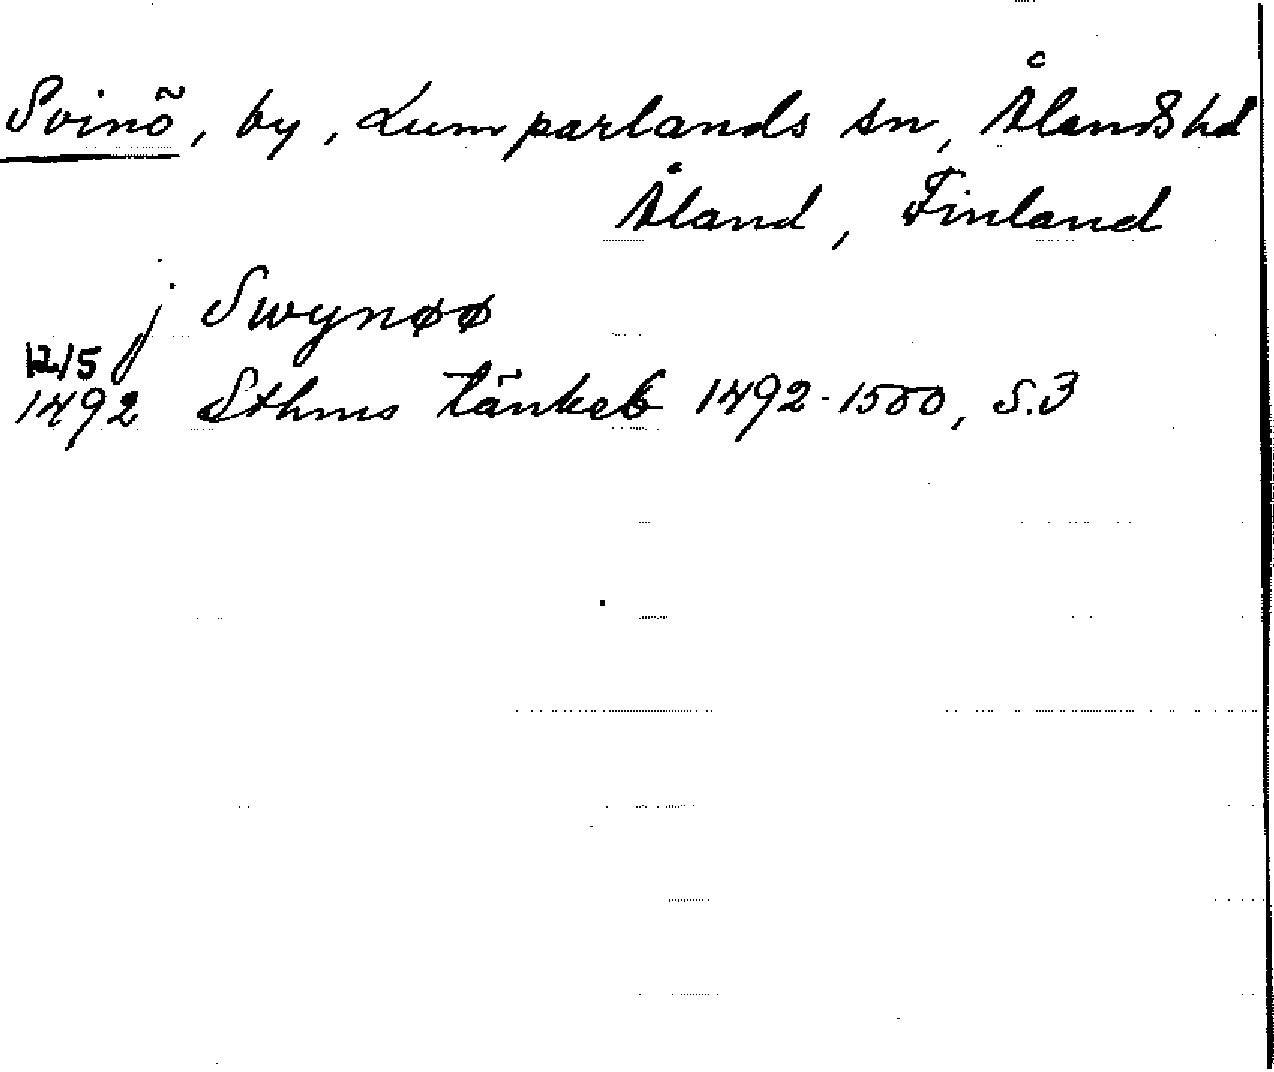 Svinö, by, Lumparlands sn, Ålands hd
Åland, Finland
j Swynøø
12/5
1492 Sthms tänkeb 1492-1500, S.3